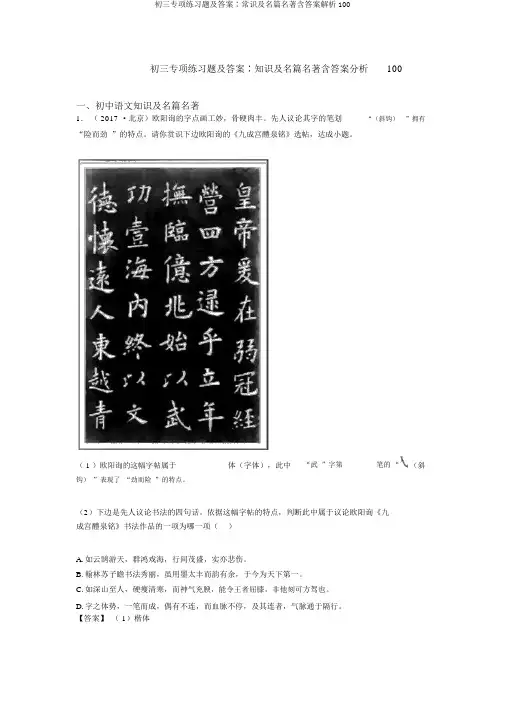 初三专项练习题及答案：常识及名篇名著含答案解析100
初三专项练习题及答案：知识及名篇名著含答案分析 100
一、初中语文知识及名篇名著
1．（ 2017 •北京）欧阳询的字点画工妙，骨硬肉丰。先人议论其字的笔划 “（斜钩） ”拥有
“险而劲 ”的特点。请你赏识下边欧阳询的《九成宫醴泉铭》选帖，达成小题。
皇帝爰在弱冠經
營四方逮乎立年
撫臨億兆始以武
功壹海內終以文
德懷遠人東越青
（ 1 ）欧阳询的这幅字帖属于 体（字体），此中 “武 ”字第 笔的 “ （斜
钩） ”表现了 “劲而险 ”的特点。
（2）下边是先人议论书法的四句话。依据这幅字帖的特点，判断此中属于议论欧阳询《九
成宫醴泉铭》书法作品的一项为哪一项（ ）
A. 如云鹄游天，群鸿戏海，行间茂盛，实亦悲伤。
B. 翰林苏子瞻书法秀丽，虽用墨太丰而韵有余，于今为天下第一。
C. 如深山至人，硬瘦清寒，而神气充腴，能令王者屈膝，非他刻可方驾也。
D. 字之体势，一笔而成，偶有不连，而血脉不停，及其连者，气脉通于隔行。
【答案】 （ 1）楷体